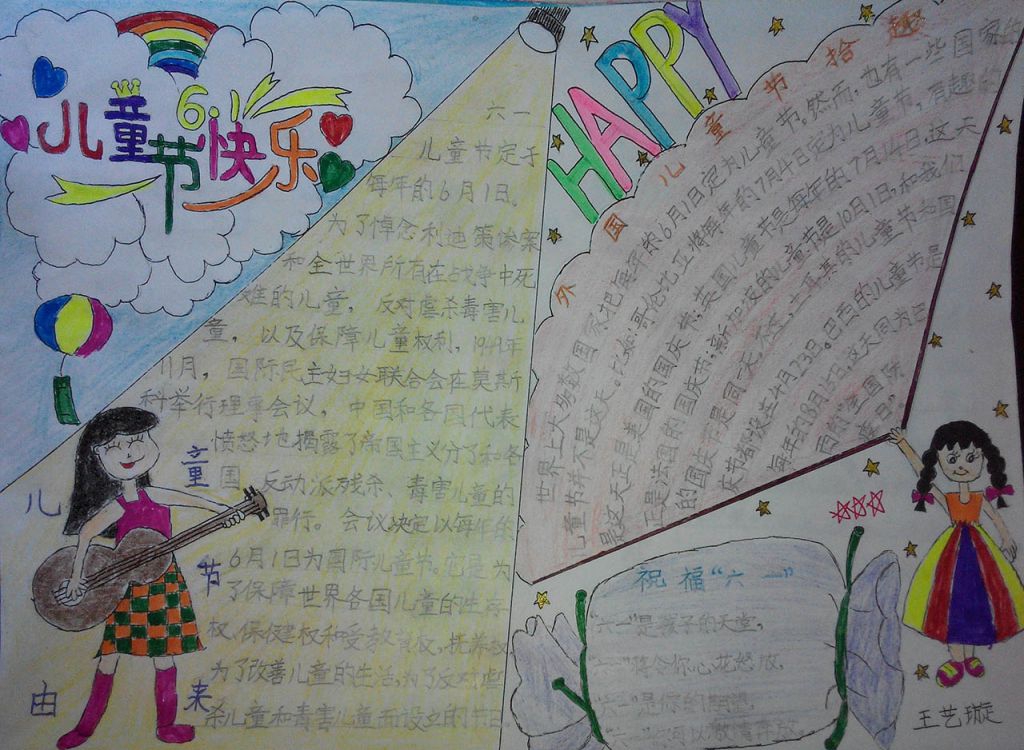 儿童节快乐
6.1
HAPPY
儿童节由来
六一
儿童节定于
每年的6月1日。
为了悼念利迪策惨案
和全世界所有在战争中死
难的儿童，反对虐杀毒害儿
童，以及保障儿童权利，1949年
11月，国际民主妇女联合会在莫斯
科举行理事会议，中国和各国代表
愤怒地揭露了帝国主义分子和各
国反动派残杀、毒害儿童的
罪行。会议决定以每年的
6月1日为国际儿童节。它是为
了保障世界各国儿童的生存
权、保健权和受教育权，抚养权，
为了改善儿童的生活，为了反对虐
杀儿童和毒害儿童而设立的节日
外国儿童节拾趣
世界上大多数国家把每年的6月1日定为儿童节。然而，也有一些国家的
儿童节并不是这天。比如：哥伦比亚将每年的7月4日定为儿童节，有趣的
是这天正是美国的国庆节；英国儿童节是每年的7月14日，这天
正是法国的国庆节；新加坡的儿童节是10月1日，和我们
的国庆节是同一天。
每年的8月15日，这天因为巴
祝福“六一”
“六一”是孩子的天堂，
令你心花怒放，
是你的
王艺璇